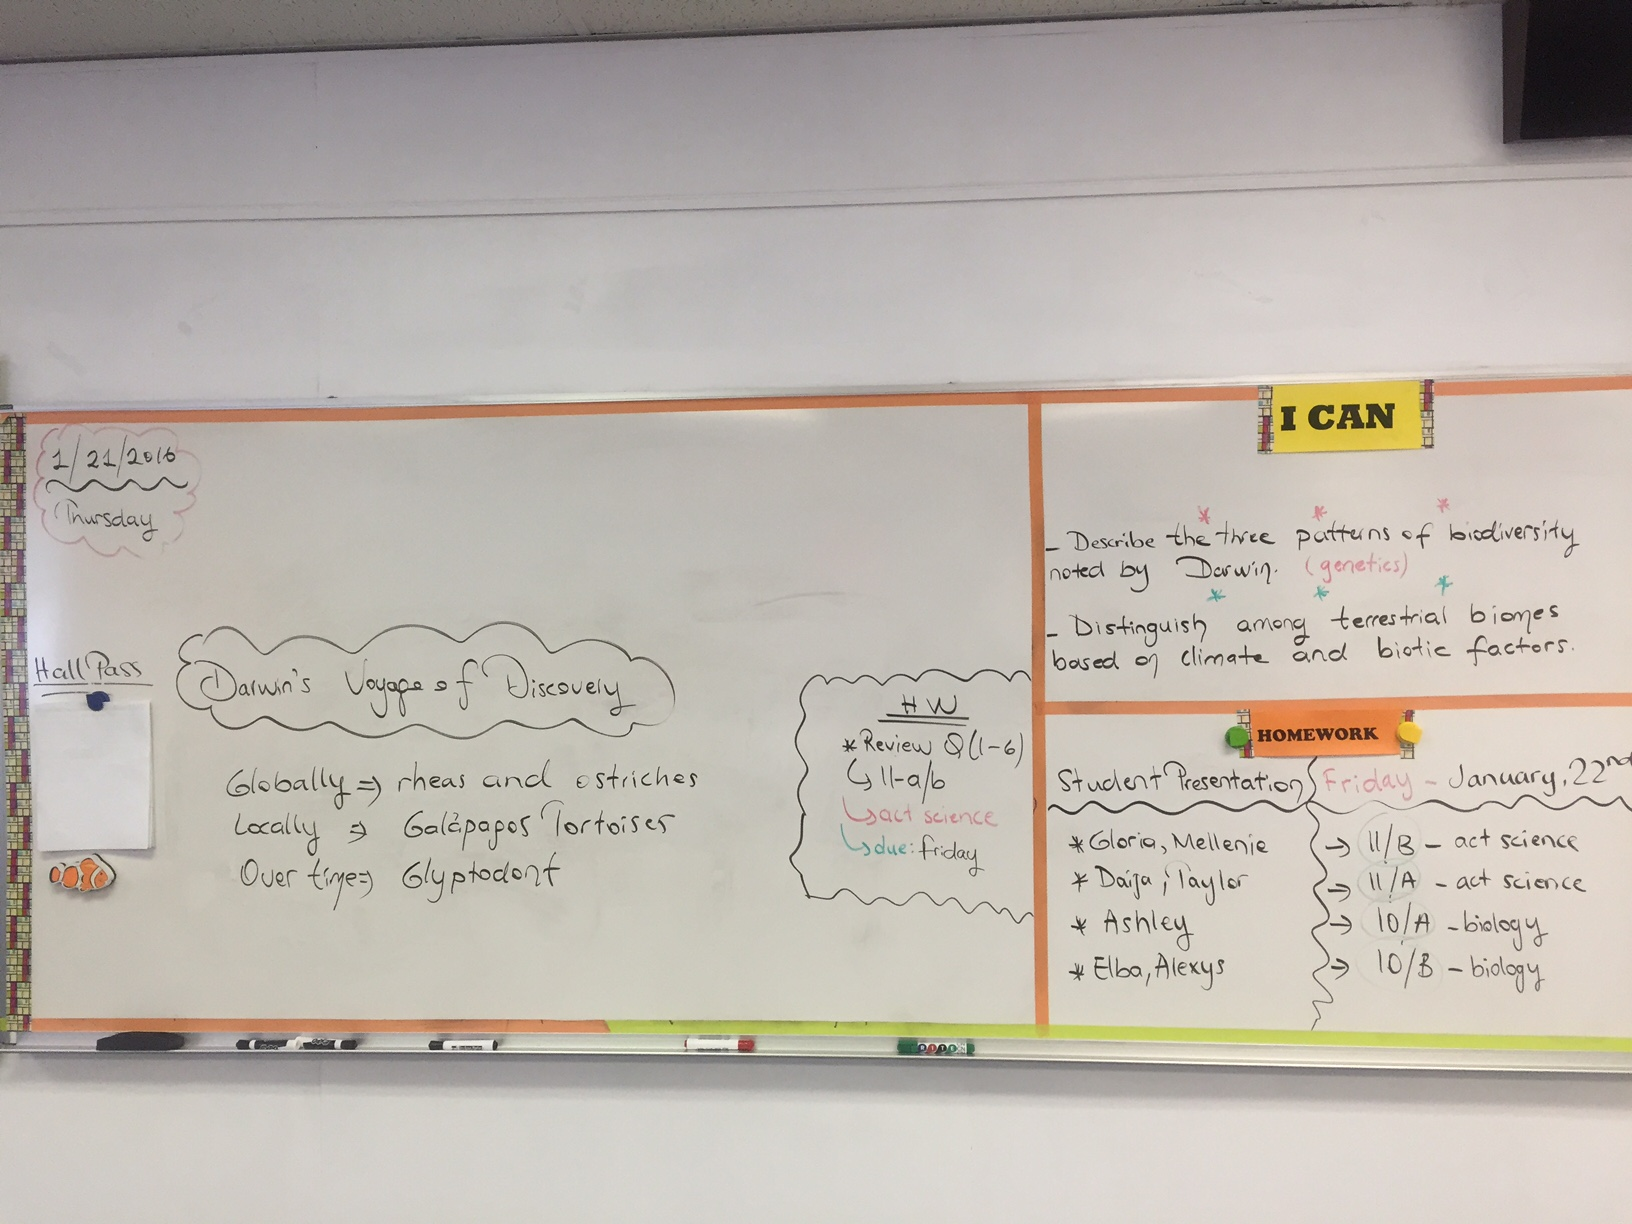 1/21/2016
Thursday
Hall Pass
Darwin's Voyage of Discovery
Globally => rheas and ostriches
Locally => Galápagos Tortoises
Over time => Glyptodont
HW
* Review Q (1-6)
↳ 11-a/b
↳ act science
↳ due: friday
I CAN
- Describe the three patterns of biodiversity
noted by Darwin. (genetics)
- Distinguish among terrestrial biomes
based on climate and biotic factors.
HOMEWORK
Student Presentation Friday - January, 22nd
* Gloria, Mellenie → 11/B - act science
* Daija, Taylor → 11/A - act science
* Ashley → 10/A - biology
* Elba, Alexys → 10/B - biology